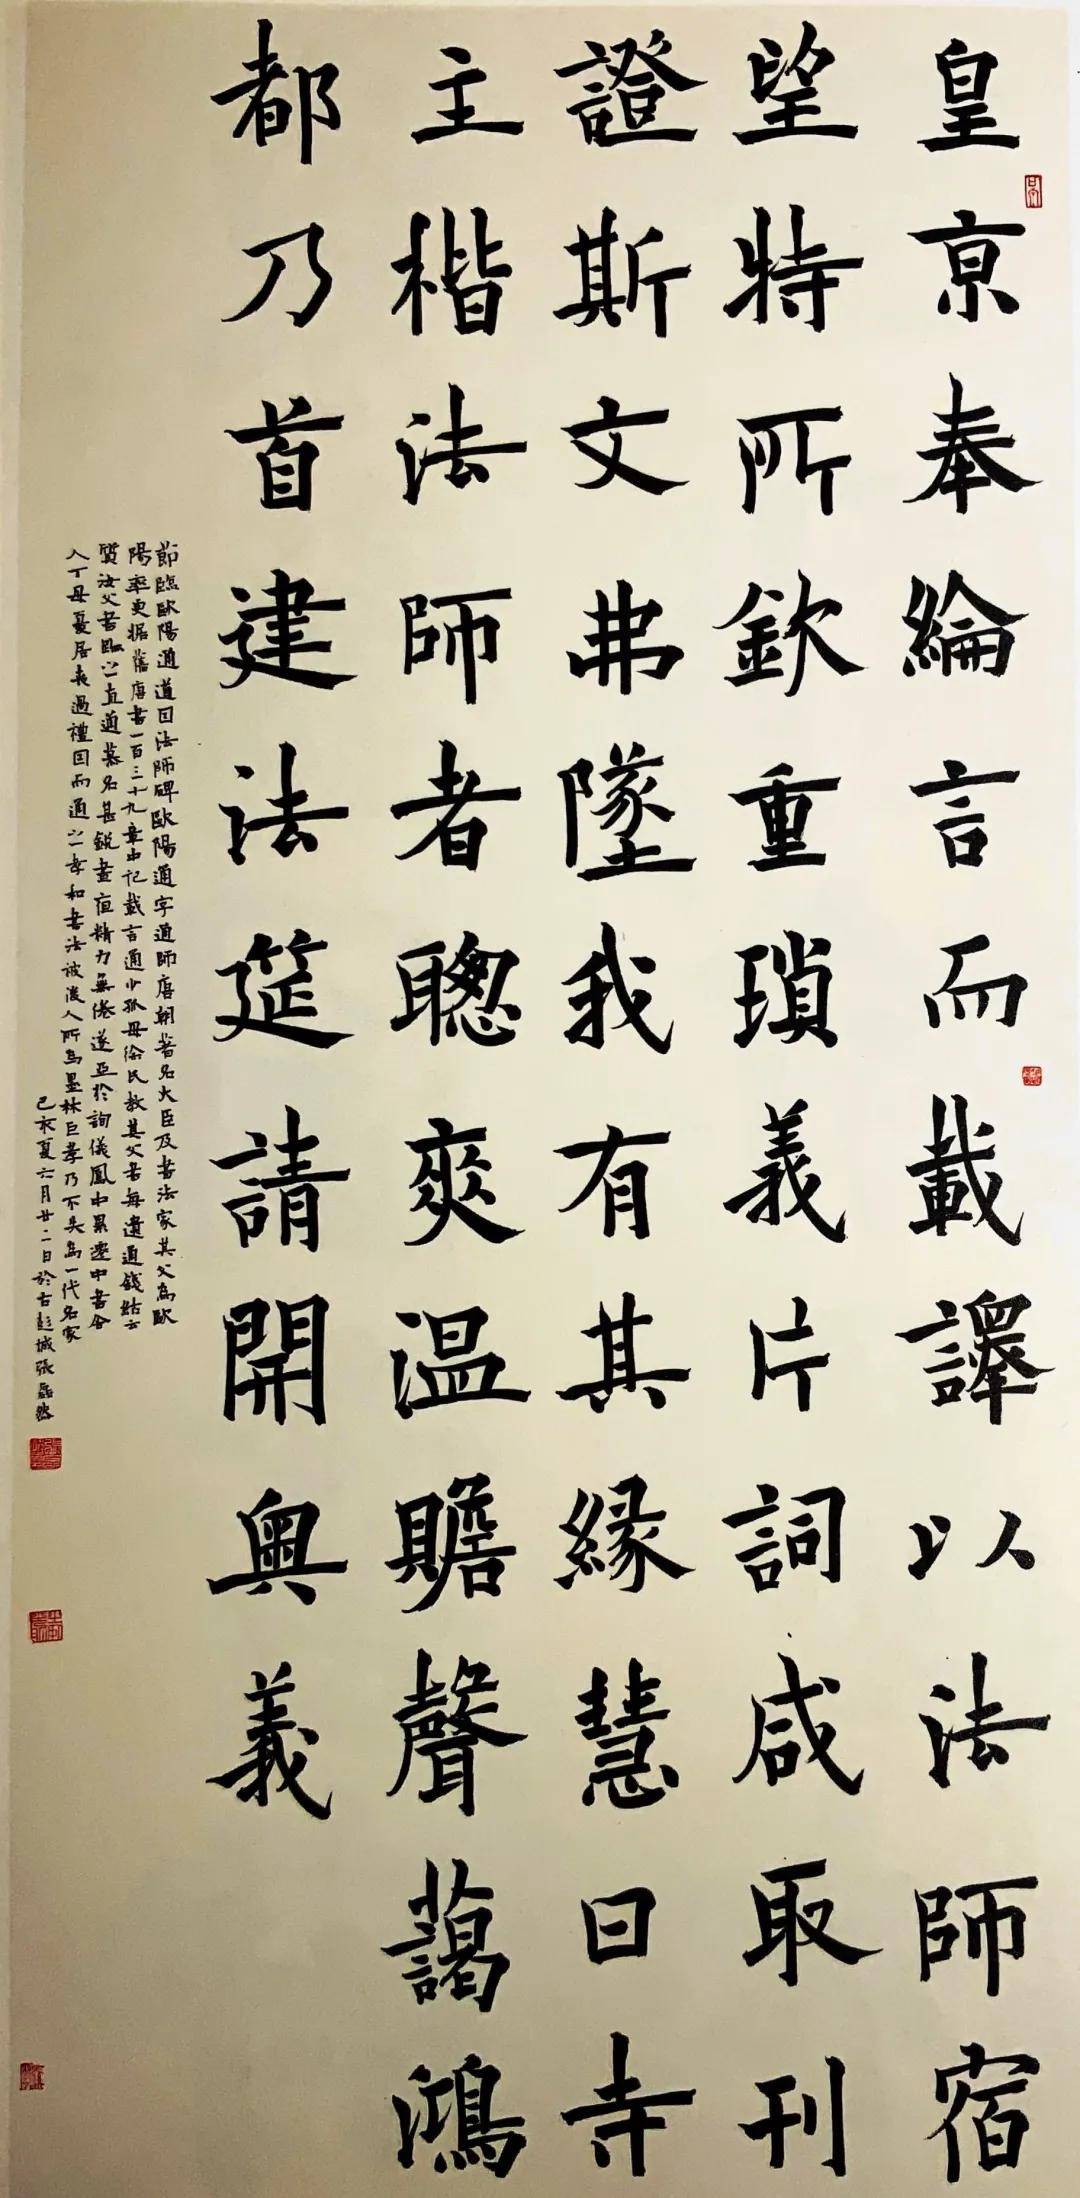 皇京奉綸言而載譯以法師宿
望特所欽重瑣義片詞咸取刊
證斯文弗墜我有其緣慧日寺
主楷法師者聰爽溫贍聲藹鴻
都乃首建法筵請開奧義
節臨歐陽通道因法師碑歐陽通字通師唐朝著名大臣及書法家其父為歐
陽率更据舊唐書一百三十九章中記載言通少孤母徐氏教其父書每遺通錢紿云
質汝父書跡之直通慕名甚銳晝夜精力無倦遂亞於詢儀鳳中累遷中書舍
人丁母憂居喪過禮因而通之孝和書法被後人所為墨林巨孝乃不失為一代名家
己亥夏六月廿二日於古彭城張磊然